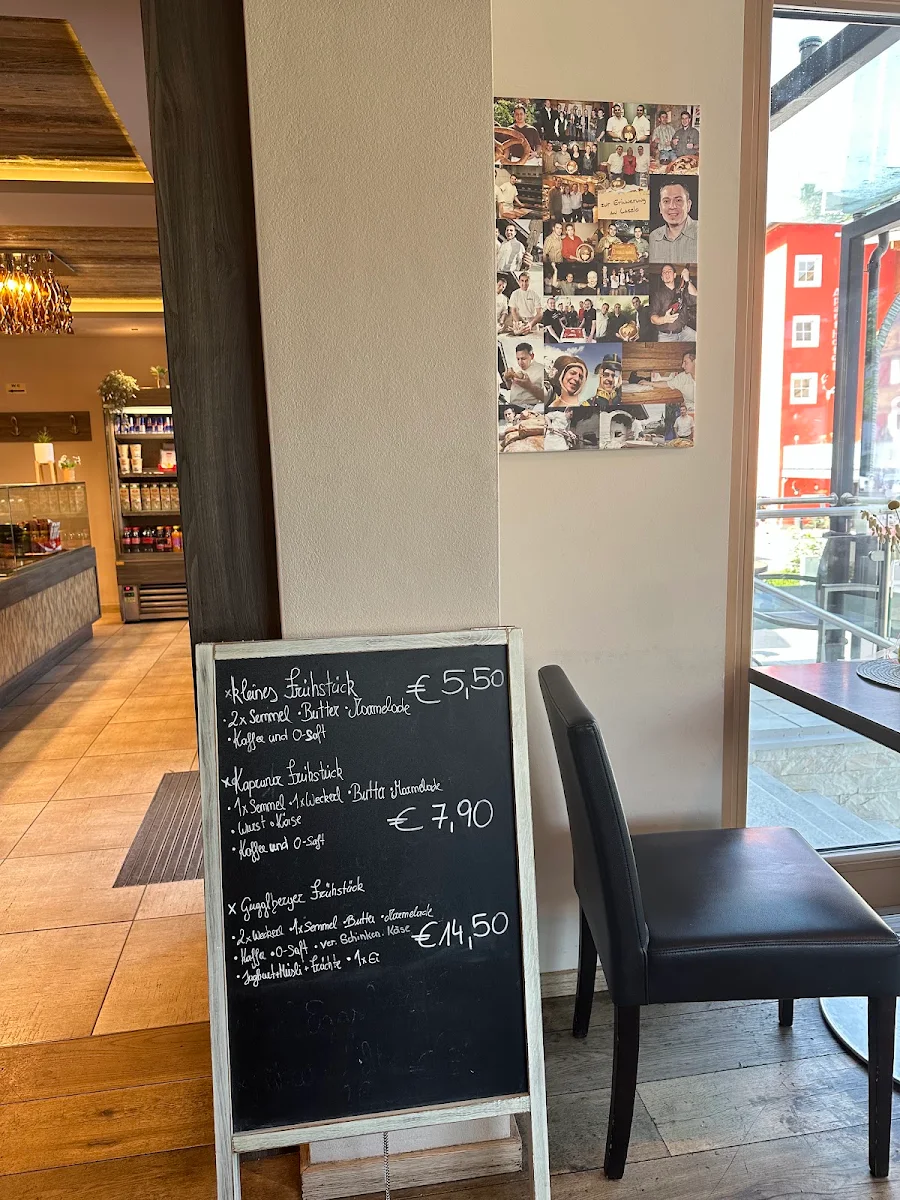 zur Erinnerung
an Laszlo
WC
x kleines Frühstück € 5,50
• 2x Semmel • Butter • Marmelade
• Kaffee und O-Saft
x Kapruner Frühstück
• 1x Semmel • 1x Weckerl • Butter • Marmelade
• Wurst • Käse € 7,90
• Kaffee und O-Saft
x Gugglberger Frühstück
• 2x Weckerl • 1x Semmel • Butter • Marmelade
• Kaffee • O-Saft • ver. Schinken. Käse €14,50
• Joghurt+Müsli + Früchte • 1x Ei